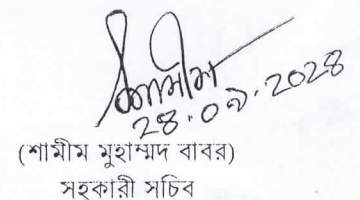 শামীম
২৪.০৯.২০২৪
(শামীম মুহাম্মদ বাবর)
সহকারী সচিব